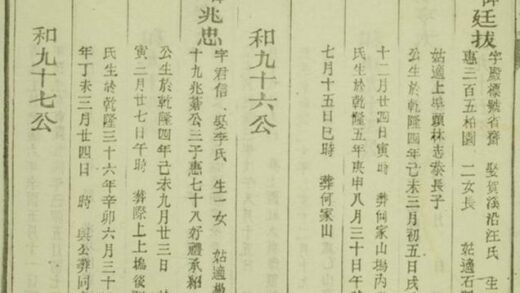 諱廷拔
字殿標號省齋 娶賀溪沿汪氏 生
惠三百五柏園 二女長 姑適石
姑適上畢頭林志泰長子
公生於乾隆四年己未三月初五日戌
十二月廿四日寅時 葬何家山塲內
氏生於乾隆五年庚申八月三十日午
七月十五日巳時 葬何家山
和九十六公
兆忠
字君信 娶李氏 生一女 姑適
十九兆基公三子惠七十八好禮承紹
公生於乾隆四年己未九月廿三日
寅二月廿七日午時 葬際上上塢後
氏生於乾隆三十六年辛卯六月三十
年丁未三月廿四日 時 與公葬同
和九十七公